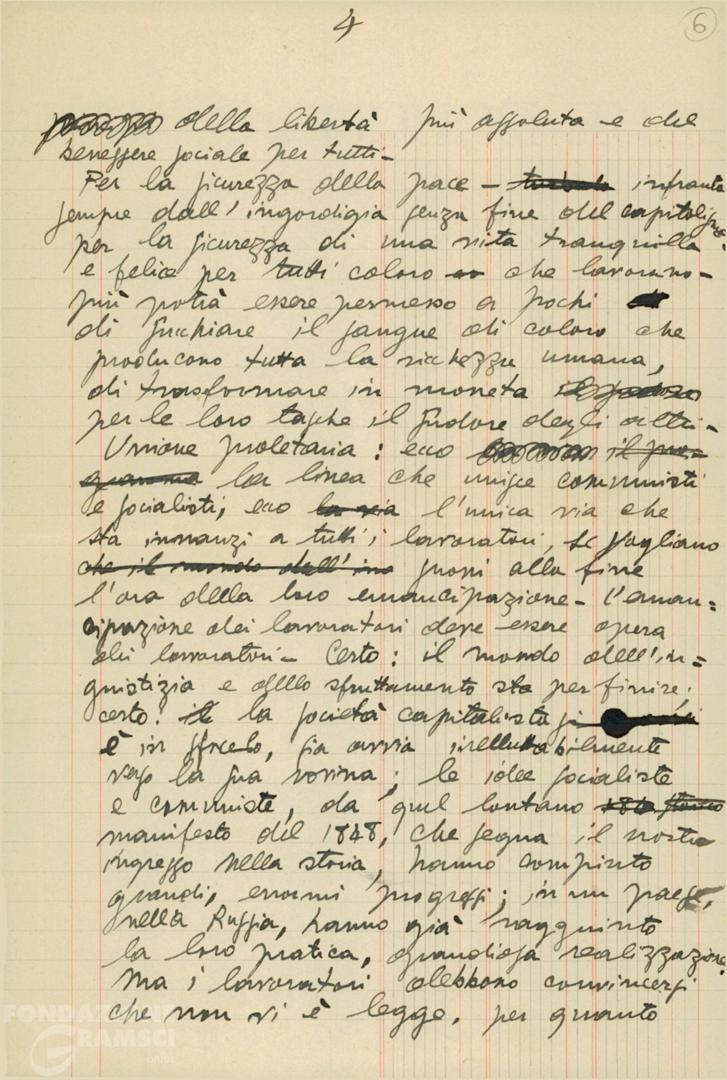 4
6
della libertà più assoluta e del
benessere sociale per tutti.
Per la sicurezza della pace – turbata infranta
sempre dall'ingordigia senza fine del capitalismo,
per la sicurezza di una vita tranquilla
e felice per tutti coloro che lavorano –
più potrà essere permesso a pochi
di succhiare il sangue di coloro che
producono tutta la ricchezza umana,
di trasformare in moneta il sudore
per le loro tasche il sudore degli altri –
Unione proletaria: ecco il pro-
gramma la linea che unisce comunisti
e socialisti, ecco la via l'unica via che
sta innanzi a tutti i lavoratori, se vogliano
che il mondo dell'in suoni alla fine
l'ora della loro emancipazione – l'eman=
cipazione dei lavoratori deve essere opera
dei lavoratori – Certo: il mondo dell'in=
giustizia e dello sfruttamento sta per finire;
certo: la società capitalista si
è in sfacelo, sia avvia ineluttabilmente
verso la sua rovina; le idee socialiste
e comuniste, da quel lontano
manifesto del 1848, che segna il nostro
ingresso nella storia, hanno compiuto
grandi, enormi progressi; in un paese,
nella Russia, hanno già raggiunto
la loro pratica, grandiosa realizzazione.
Ma i lavoratori debbono convincersi
che non vi è legge, per quanto
FONDAZIONE
GRAMSCI